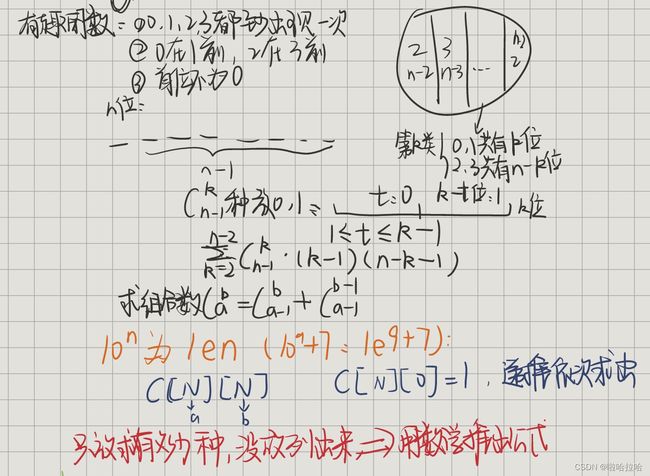 有趣的数:①0,1,2,3都至少出现一次
②0在1前,2在3前
③首位不为0
n位:
n-1
2 3 n-2
n-2 n-3 … 2
第k类 0,1共有k位
2,3共有n-k位
C_{n-1}^{k}种放0,1: t:0, k-t位:1, k位
1≤t≤k-1
\sum_{k=2}^{n-2} C_{n-1}^{k}·(k-1)(n-k-1)
求组合数C_{a}^{b}=C_{a-1}^{b}+C_{a-1}^{b-1}
10^n为1en (10^9+7=1e9+7):
C[N][N] C[N][0]=1,递推依次求出
a b
只放求有多少种,没放列出来,⇒用数学推出公式
CSDN @啦哈拉哈